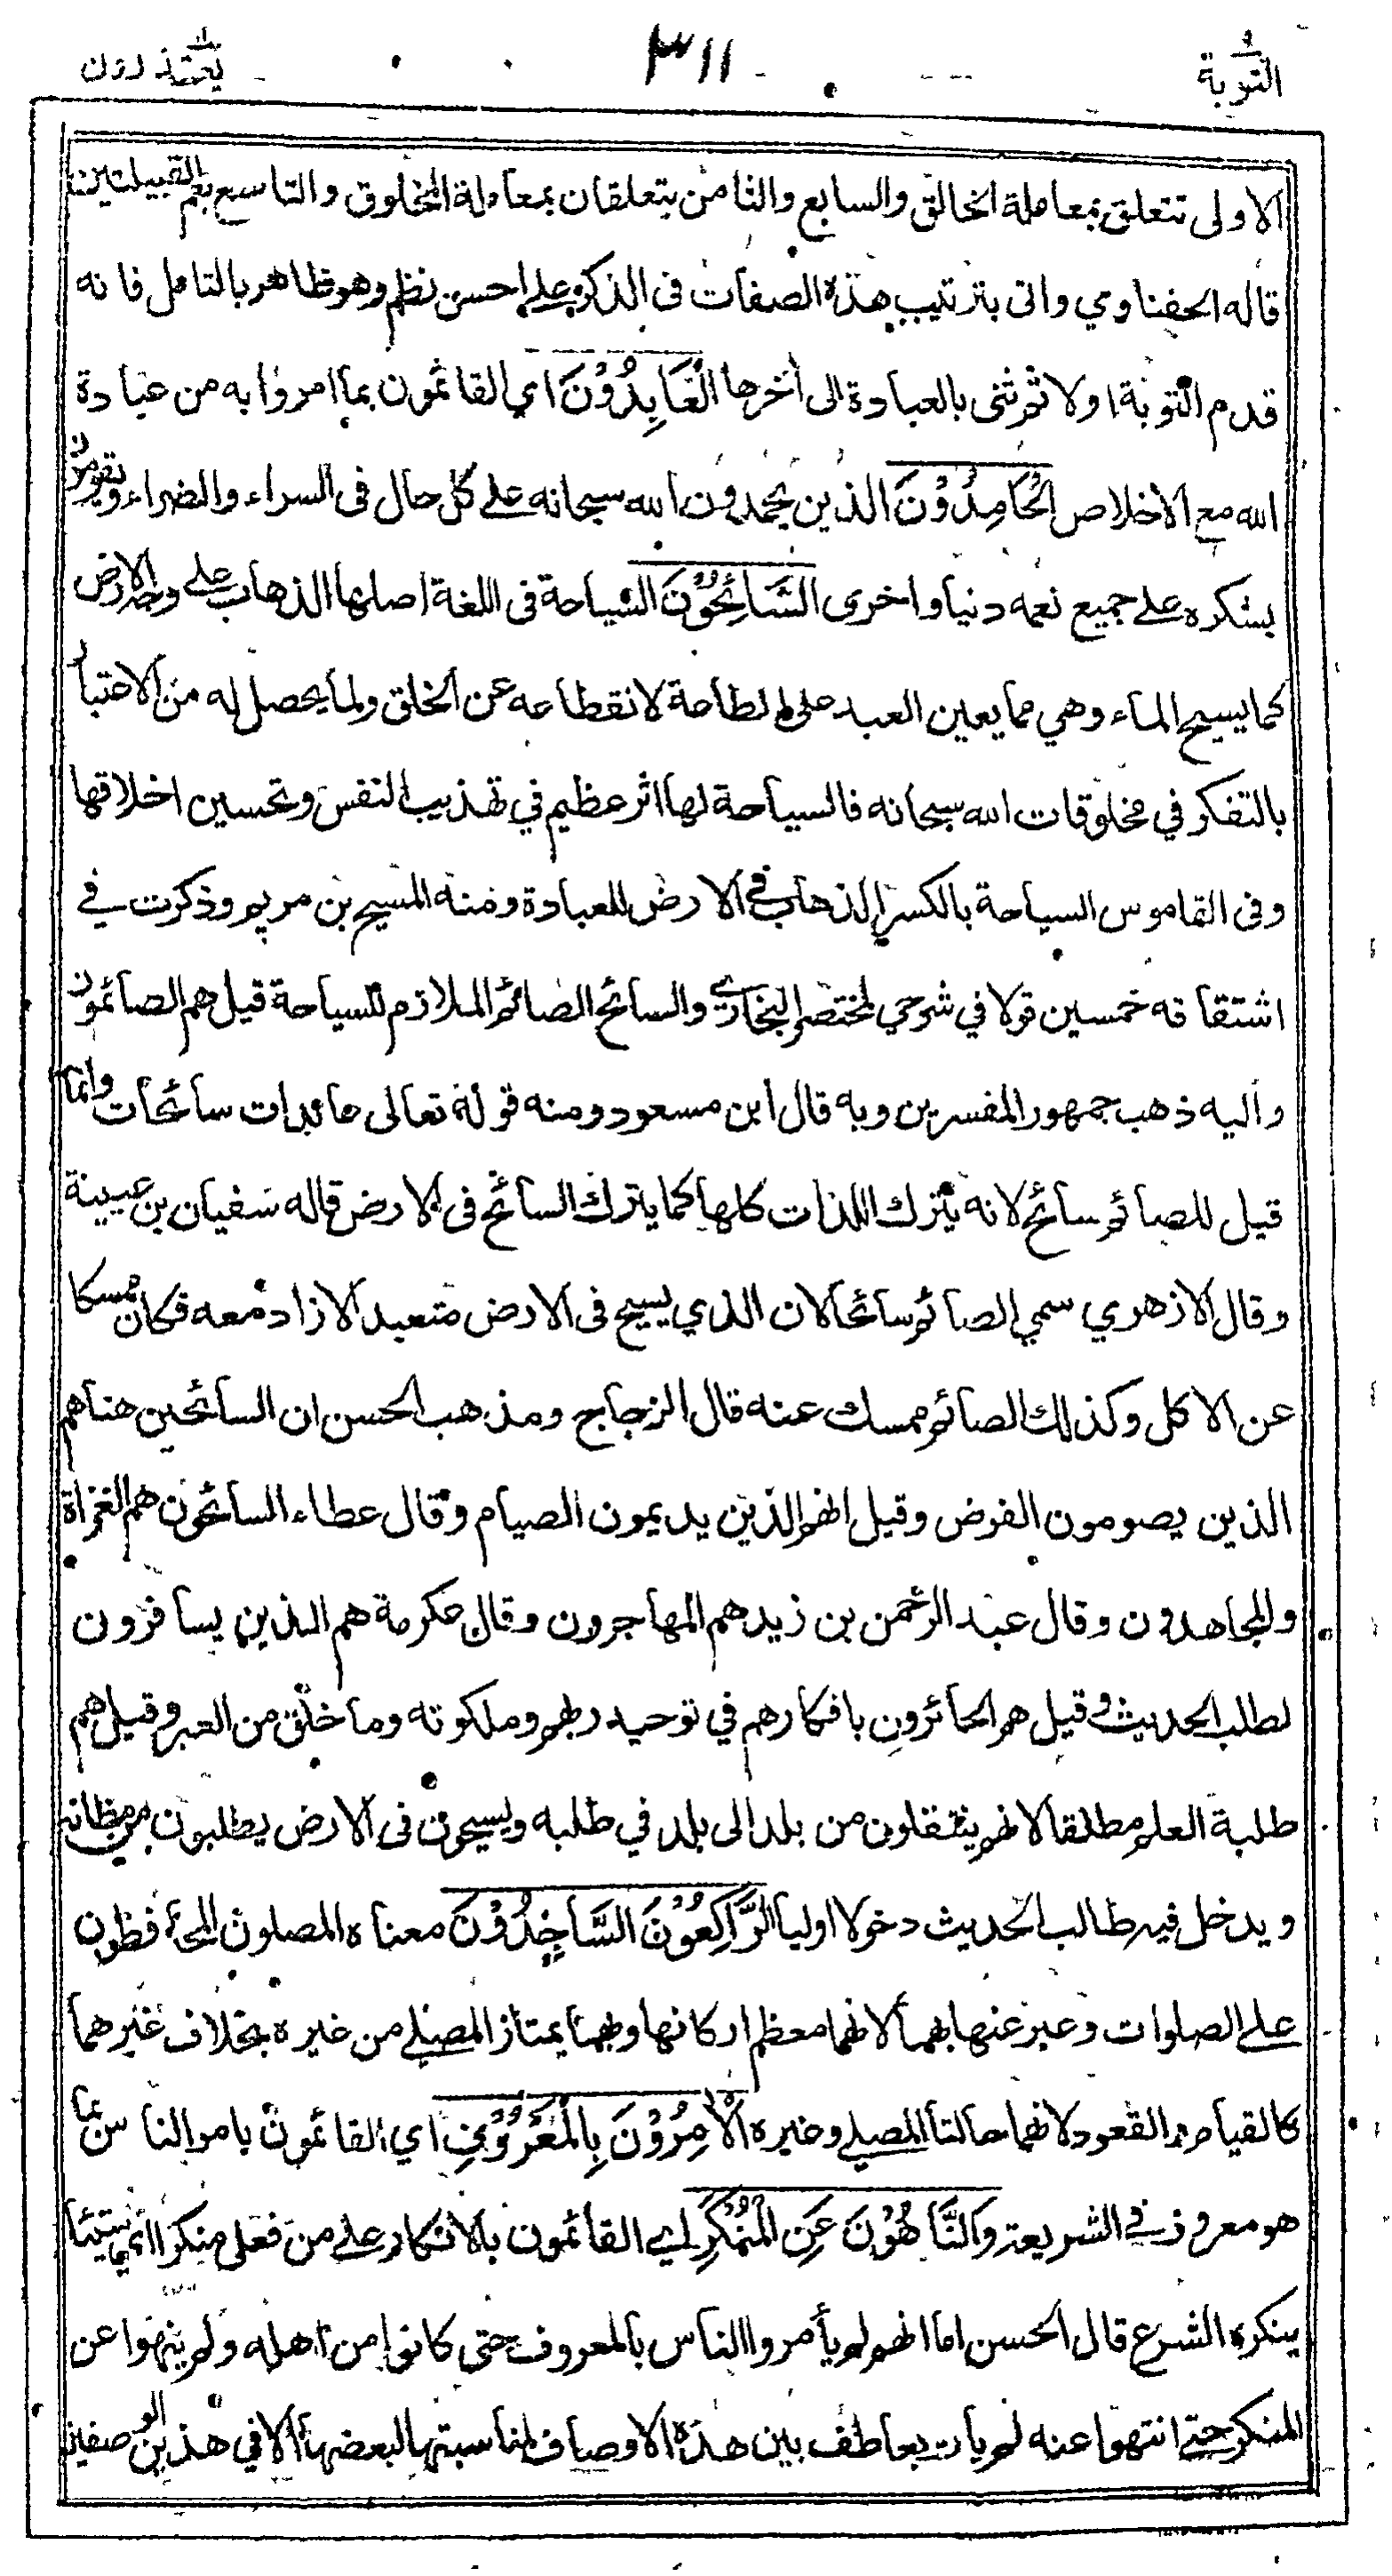 التوبة ٩
٣١١
يعتذرون ١١
الاولى تتعلق بمعاملة الخالق والسابع والثامن يتعلقان بمعاملة المخلوق والتاسع يعم القبيلتين
قاله الحفناوي واتى بترتيب هذه الصفات في الذكر على احسن نظم وهو ظاهر بالتامل فانه
قدم التوبة اولا ثم ثنى بالعبادة الى أخرها الْعَابِدُوْنَ اي القائمون بما امروا به من عبادة
الله مع الاخلاص الْحَامِدُوْنَ الذين يحمدون الله سبحانه على كل حال في السراء والضراء ويقومون
بشكره على جميع نعمه دنيا واخرى السَّائِحُوْنَ السياحة في اللغة اصلها الذهاب على وجه الارض
كما يسيح الماء وهي مما يعين العبد على الطاعة لانقطاعه عن الخلق ولما يحصل له من الاعتبار
بالتفكر في مخلوقات الله سبحانه فالسياحة لها اثر عظيم في تهذيب النفس وتحسين اخلاقها
وفي القاموس السياحة بالكسر الذهاب في الارض للعبادة ومنه المسيح بن مريم وذكرت في
اشتقاقه خمسين قولا في شرحي لمختصر البخاري والسائح الصائم الملازم للسياحة قيل هم الصائمون
واليه ذهب جمهور المفسرين وبه قال ابن مسعود ومنه قوله تعالى عابدات سائحات وانما
قيل للصائم سائح لانه يترك اللذات كلها كما يترك السائح في الارض قاله سفيان بن عيينة
وقال الازهري سمي الصائم سائحا لان الذي يسيح في الارض متعبد لا زاد معه فكان ممسكا
عن الاكل وكذلك الصائم ممسك عنه قال الزجاج ومذهب الحسن ان السائحين هنا هم
الذين يصومون الفرض وقيل انهم الذين يديمون الصيام وقال عطاء السائحون هم الغزاة
والمجاهدون وقال عبد الرحمن بن زيد هم المهاجرون وقال عكرمة هم الذين يسافرون
لطلب الحديث وقيل هم الجائرون بافكارهم في توحيد ربهم وملكوته وما خلق من العبر وقيل هم
طلبة العلم مطلقا لانهم ينتقلون من بلد الى بلد في طلبه ويسيحون في الارض يطلبون من مظانه
ويدخل فيه طالب الحديث دخولا اوليا الرَّاكِعُوْنَ السَّاجِدُوْنَ معناه المصلون المحافظون
على الصلوات وعبر عنها بهما لانهما معظم اركانها وبهما يمتاز المصلي من غيره بخلاف غيرهما
كالقيام والقعود لانهما حالتا المصلي وغيره الْاٰمِرُوْنَ بِالْمَعْرُوْفِ اي القائمون بامر الناس بما
هو معروف في الشريعة وَالنَّاهُوْنَ عَنِ الْمُنْكَرِ اي القائمون بالانكار على من فعل منكرا اي شيئا
ينكره الشرع قال الحسن اما انهم لم يأمروا الناس بالمعروف حتى كانوا من اهله ولم ينهوا عن
المنكر حتى انتهوا عنه لم يات بعاطف بين هذه الاوصاف لمناسبتها لبعضها الا في هذين الوصفين